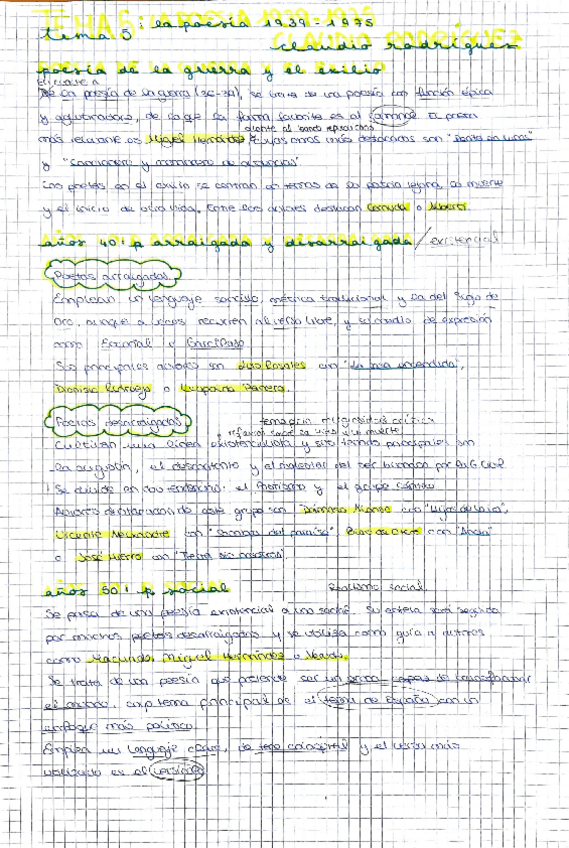 tema 5: la poesía 1939-1975
claudio rodríguez
poesía de la guerra y el exilio
En la poesía de la guerra (36-39), se trata de una poesía con función épica
y , de la que la forma favorita es el romance. El poeta
más relevante es Miguel Hernández cuyas obras más destacadas son "Perito en lunas"
y "Cancionero y romancero de ausencias"
Los poetas en el exilio se centran en temas de la patria lejana, la muerte
y el inicio de otra vida. Entre los autores destacan Cernuda o Alberti.
años 40: p arraigada y desarraigada / existencial
Poetas arraigados
Emplean un lenguaje sencillo, métrica tradicional y la del Siglo de
Oro, aunque a veces recurren al verso libre, y su medio de expresión
como Escorial y Garcilaso
Sus principales autores son Luis Rosales con "La casa encendida",
Dionisio Ridruejo o Leopoldo Panero.
Poetas desarraigados
reflexión sobre la vida y la muerte
Cultivan una poesía existencialista y sus temas principales son
la angustia, el descontento y el malestar del ser humano por la G Civil
Se divide en dos : el Postismo y el grupo Cántico
Autores destacados de este grupo son Dámaso Alonso con "Hijos de la ira",
Vicente Aleixandre con "Sombra del paraíso" Blas de Otero con "Ancia"
o José Hierro con "Tierra sin nosotros"
años 50: p social
Realismo social
Se pasa de una poesía existencial a una social. Su estela será seguida
por muchos poetas desarraigados y se utiliza como guía a autores
como Machado, Miguel Hernández o
Se trata de una poesía que pretende ser un arma capaz de transformar
el mundo, cuyo tema principal es el tema de España con un
enfoque más político.
Emplea un lenguaje claro, de tono coloquial y el verso más
utilizado es el versículo